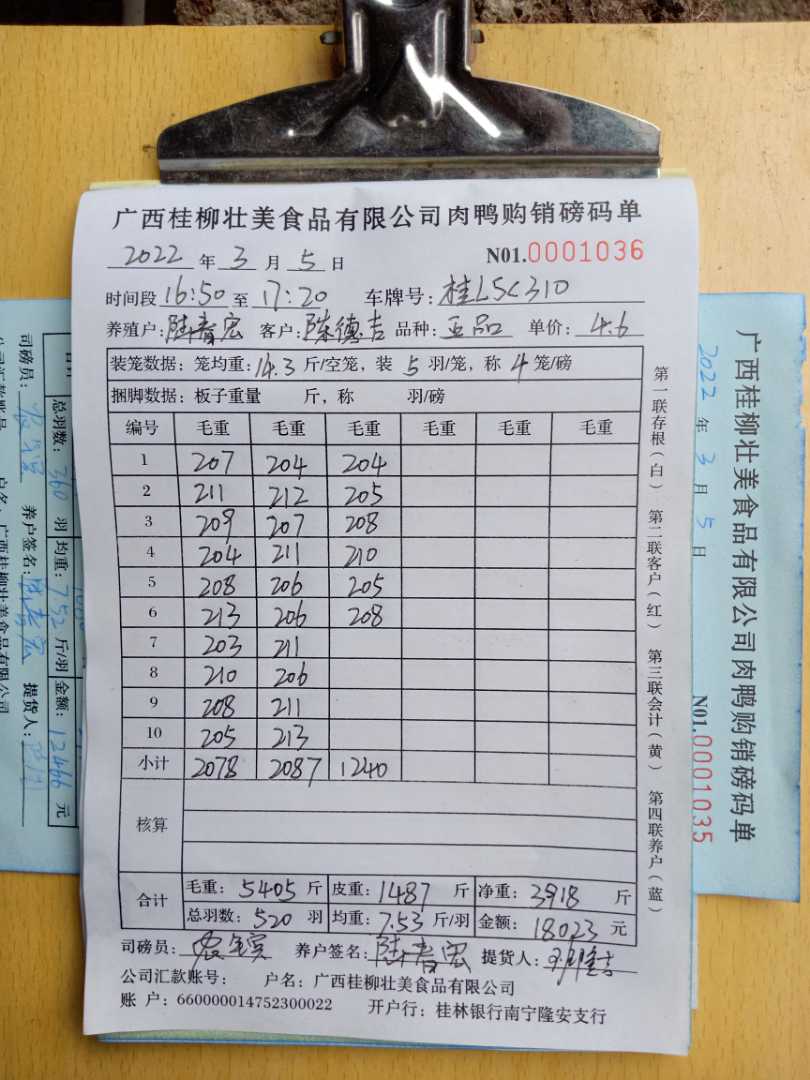 广西桂柳壮美食品有限公司肉鸭购销磅码单
2022年3月5日 N01.0001036
时间段16:50至17:20 车牌号:桂L5C310
养殖户:陆春宏 客户:陈德吉 品种:正品 单价:4.6
装笼数据:笼均重:14.3斤/空笼,装5羽/笼,称4笼/磅
捆脚数据:板子重量 斤,称 羽/磅
编号 毛重 毛重 毛重 毛重 毛重 毛重
1 207 204 204
2 211 212 205
3 209 207 208
4 204 211 210
5 208 206 205
6 213 206 208
7 203 211
8 210 206
9 208 211
10 205 213
小计 2078 2087 1240
核算
合计 毛重:5405斤 皮重:1487斤 净重:3918斤
总羽数:520羽 均重:7.53斤/羽 金额:18023元
司磅员: 养户签名:陆春宏 提货人:
公司汇款账号: 户名:广西桂柳壮美食品有限公司
账 户:660000014752300022 开户行:桂林银行南宁隆安支行
第一联存根(白) 第二联客户(红) 第三联会计(黄) 第四联养户(蓝)
广西桂柳壮美食品有限公司肉鸭购销磅码单
2022年3月5日
N01.0001035
总羽数:360羽 均重:7.52斤/羽 金额:12466元
司磅员: 养户签名:陆春宏 提货人:
户名:广西桂柳壮美食品有限公司